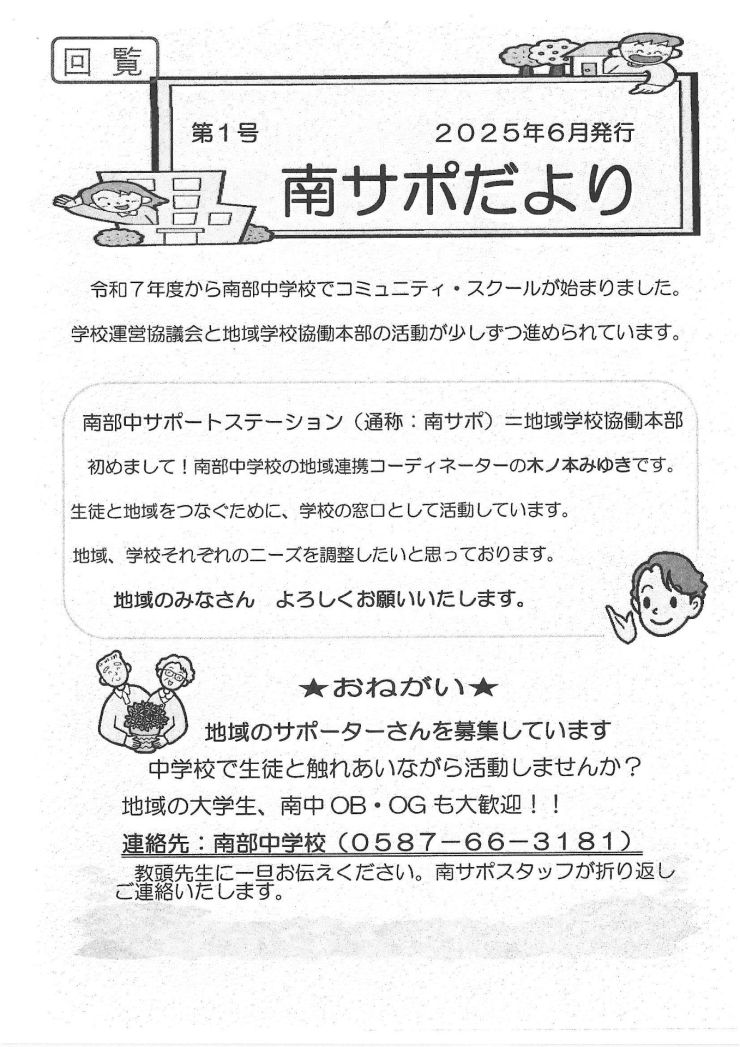 回覧
第1号　２０２５年６月発行
南サポだより
令和７年度から南部中学校でコミュニティ・スクールが始まりました。
学校運営協議会と地域学校協働本部の活動が少しずつ進められています。
南部中サポートステーション（通称：南サポ）＝地域学校協働本部
初めまして！南部中学校の地域連携コーディネーターの木ノ本みゆきです。
生徒と地域をつなぐために、学校の窓口として活動しています。
地域、学校それぞれのニーズを調整したいと思っております。
地域のみなさん　よろしくお願いいたします。
★おねがい★
地域のサポーターさんを募集しています
中学校で生徒と触れあいながら活動しませんか？
地域の大学生、南中OB・OGも大歓迎！！
連絡先：南部中学校（０５８７－６６－３１８１）
教頭先生に一旦お伝えください。南サポスタッフが折り返し
ご連絡いたします。